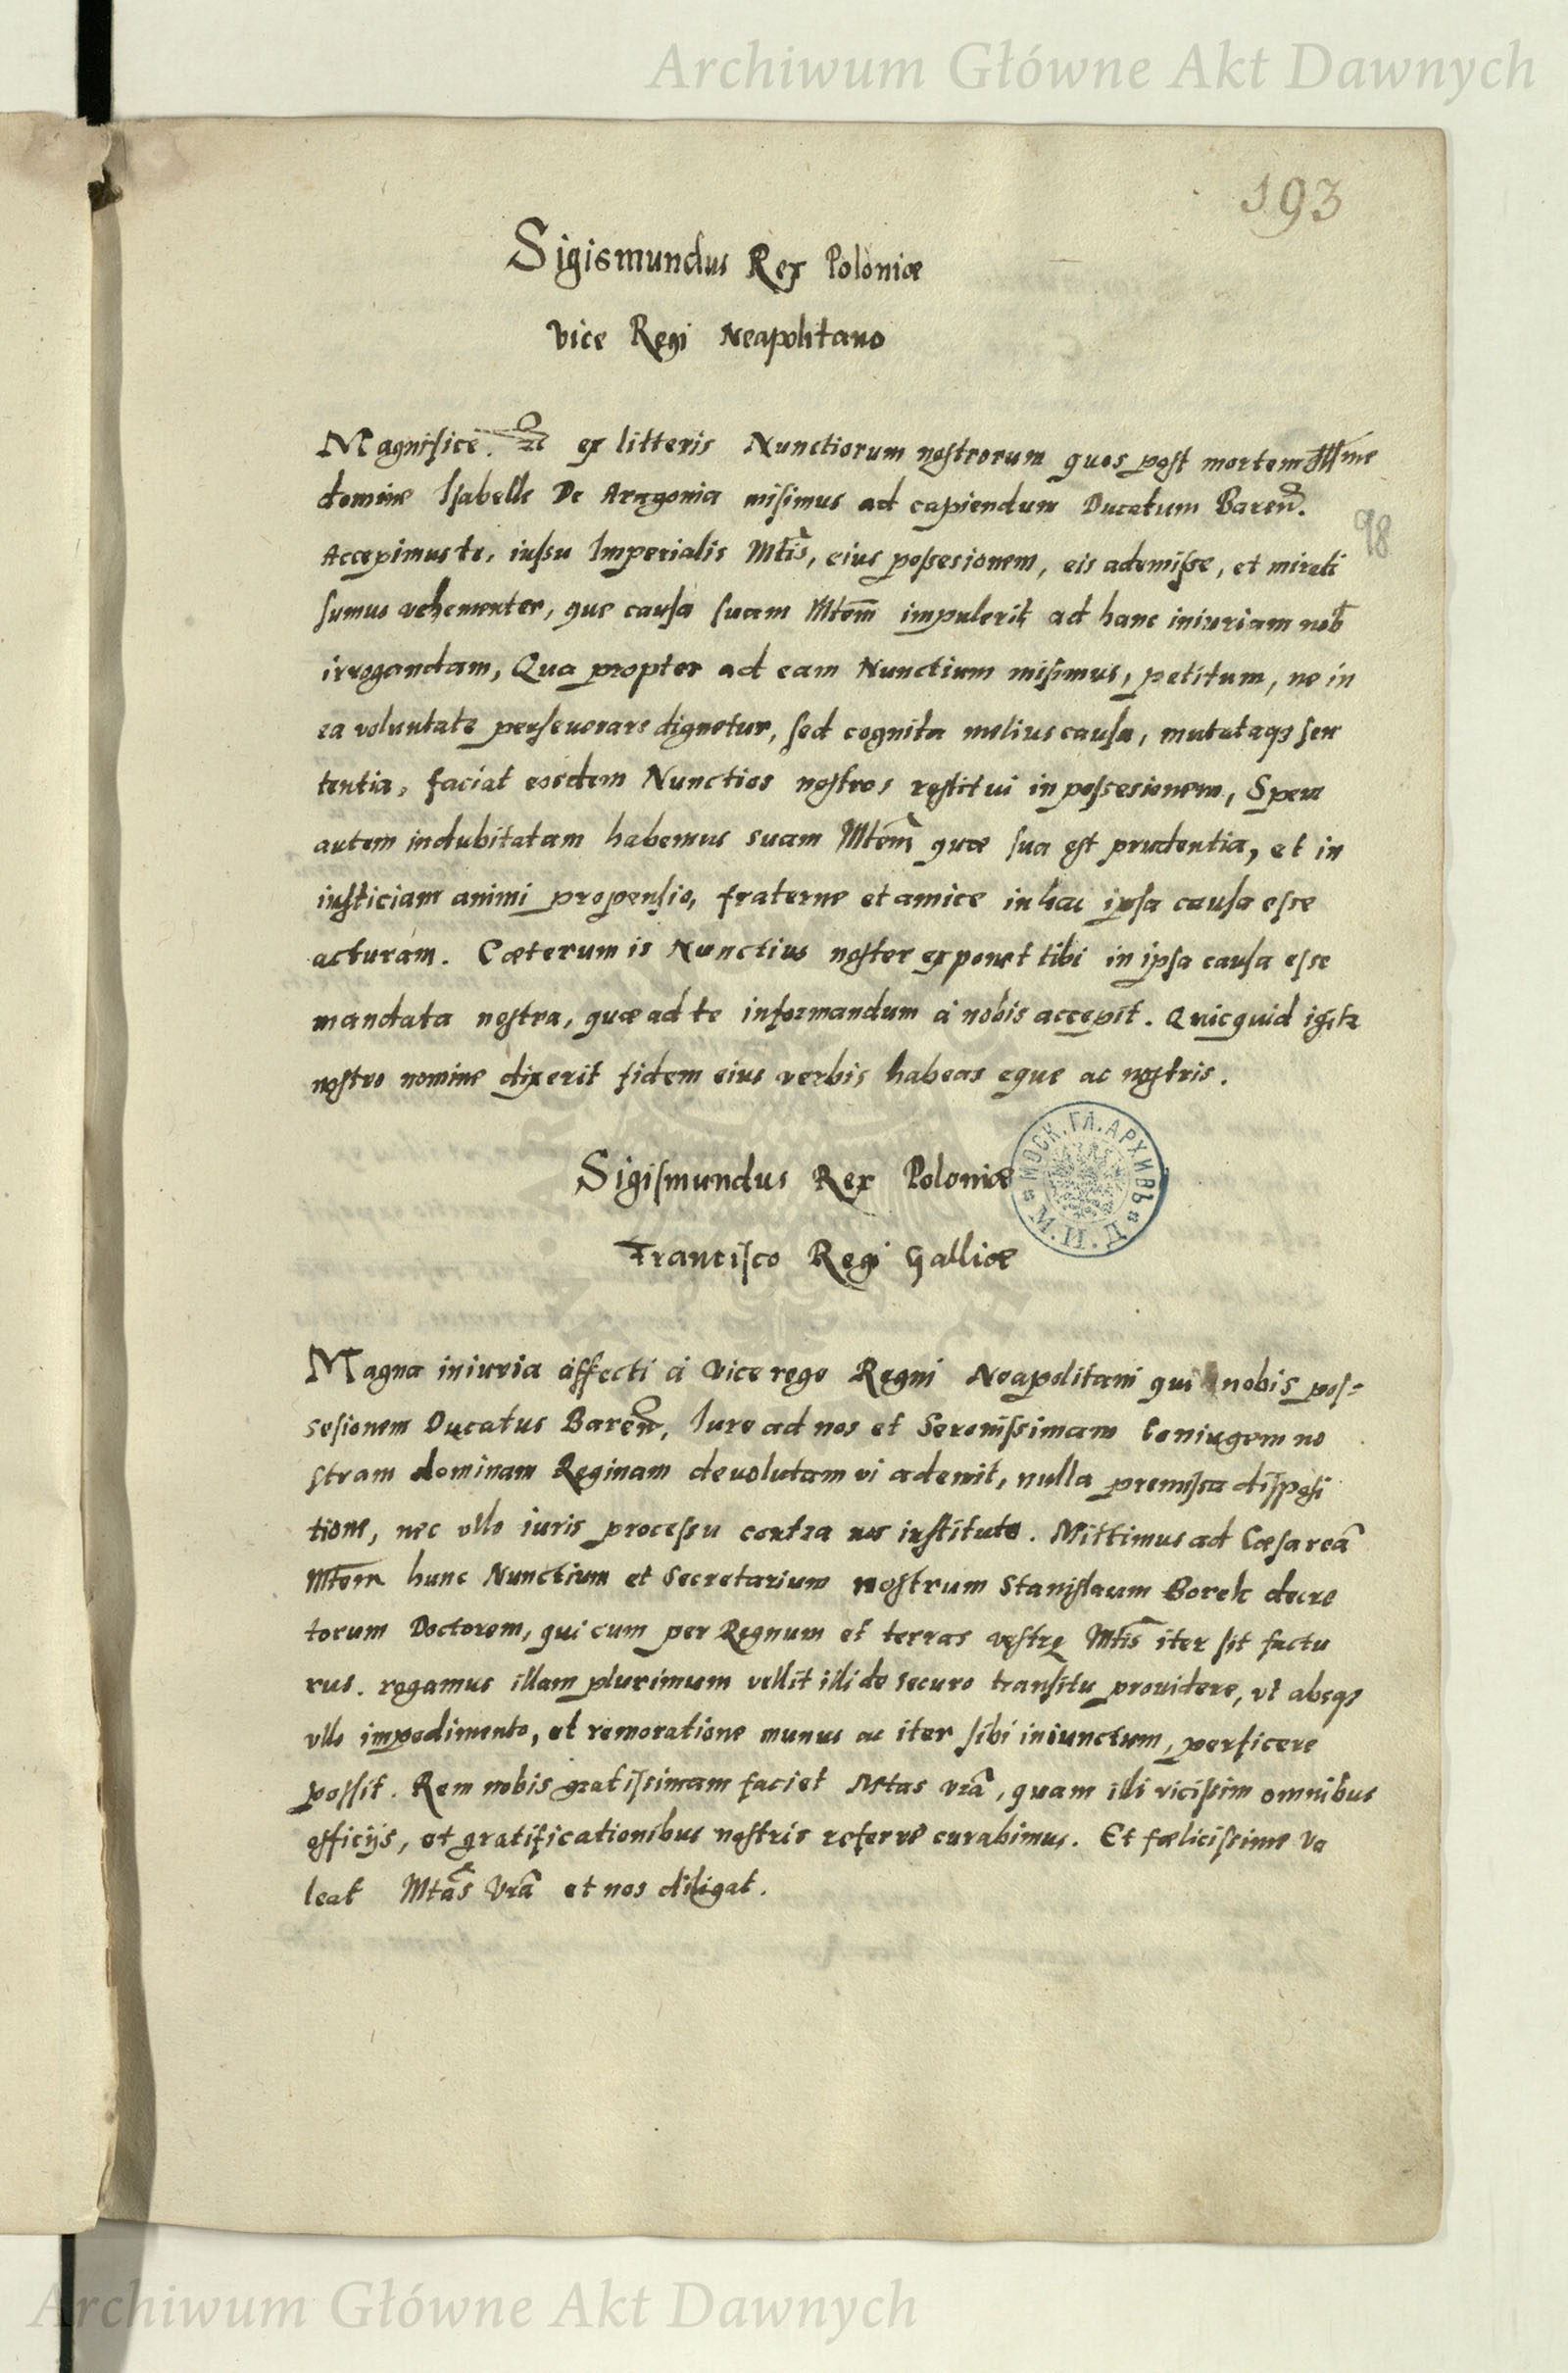 Archiwum Główne Akt Dawnych
193
Sigismundus Rex Poloniæ
Vice Regi Neapolitano
Magnifice. ex litteris Nunctiorum nostrorum quos post mortem Illme
domine Isabelle De Aragonia misimus ad capiendum Ducatum Baren.
98
Accepimus te, iussu Imperialis Mtis, eius possesionem, eis ademisse, et mirati
sumus vehementer, que causa suam Mtem impulerit ad hanc iniuriam nob
irrogandam, Qua propter ad eam Nunctium misimus, petitum, ne in
ea voluntate perseverare dignetur, sed cognita melius causa, mutataqз sen
tentia, faciat eosdem Nunctios nostros restitui in possesionem, Spem
autem indubitatam habemus suam Mtem quæ sua est prudentia, et in
iusticiam animi propensio, fraterne et amice in hac ipsa causa esse
acturam. Cæterum is Nunctius noster exponet tibi in ipsa causa esse
mandata nostra, quæ ad te informandum à nobis accepit. Quicquid igitr
nostro nomine dixerit fidem eius verbis habeas eque ac nostris.
МОСК. ГЛ. АРХИВЪ
М. И. Д
Sigismundus Rex Poloniæ
Francisco Regi Galliæ
Magna iniuria affecti à Vice rege Regni Neapolitani qui nobis pos=
sesionem Ducatus Baren, Iure ad nos et Serenissimam Coniugem no
stram dominam Reginam devolutam vi ademit, nulla premissa disposi
tione, nec ullo iuris processu contra nos instituto. Mittimus ad Cæsareã
Mtem hunc Nunctium et Secretarium nostrum Stanislaum Borek decre
torum Doctorem, qui cum per Regnum et terras vestrę Mtis iter sit factu
rus. rogamus illam plurimum vellit illi de securo transitu providere, ut absqз
ullo impedimento, et remoratione munus ac iter sibi iniunctum, perficere
possit. Rem nobis gratissimam faciet Mtas vrã, quam illi vicissim omnibus
officijs, et gratificationibus nostris referre curabimus. Et fœlicissime va
leat Mtas Vrã et nos diligat.
Archiwum Główne Akt Dawnych